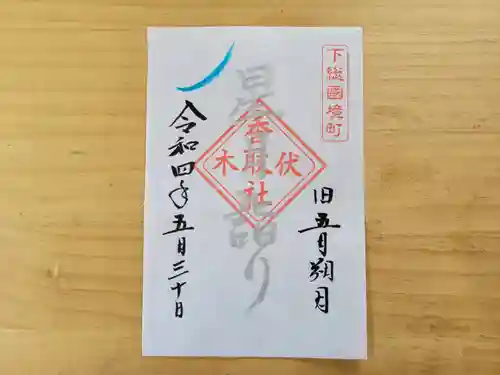 下総國境町
旧五月朔月
香取社
伏木
詣り
令和四年五月三十日